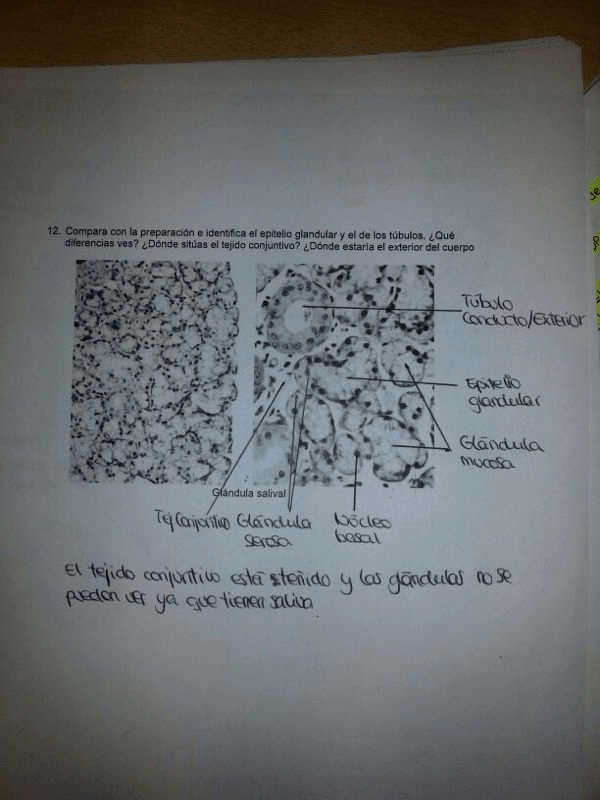 12. Compara con la preparación e identifica el epitelio glandular y el de los túbulos. ¿Qué
diferencias ves? ¿Dónde sitúas el tejido conjuntivo? ¿Dónde estaría el exterior del cuerpo
Túbulo
Conducto/Exterior
Epitelio
glandular
Glándula
mucosa
Glándula salival
Tej Conjuntivo Glándula
serosa
Núcleo
basal
El tejido conjuntivo está steñido y las glándulas no se
pueden ver ya que tienen saliva